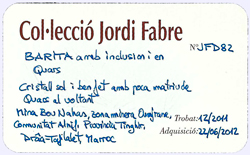 Col·lecció Jordi Fabre
Nº JFD82
BARITA amb inclusions en
Quars
Cristall sol i ben fet amb poca matriu de
Quars al voltant
Mina Bou Nahas, zona minera Oumjrane,
Comunitat Alnif, Província Tinghir,
Drâa-Tafilalet Marroc
Trobat: 12/2011
Adquisició: 22/06/2012